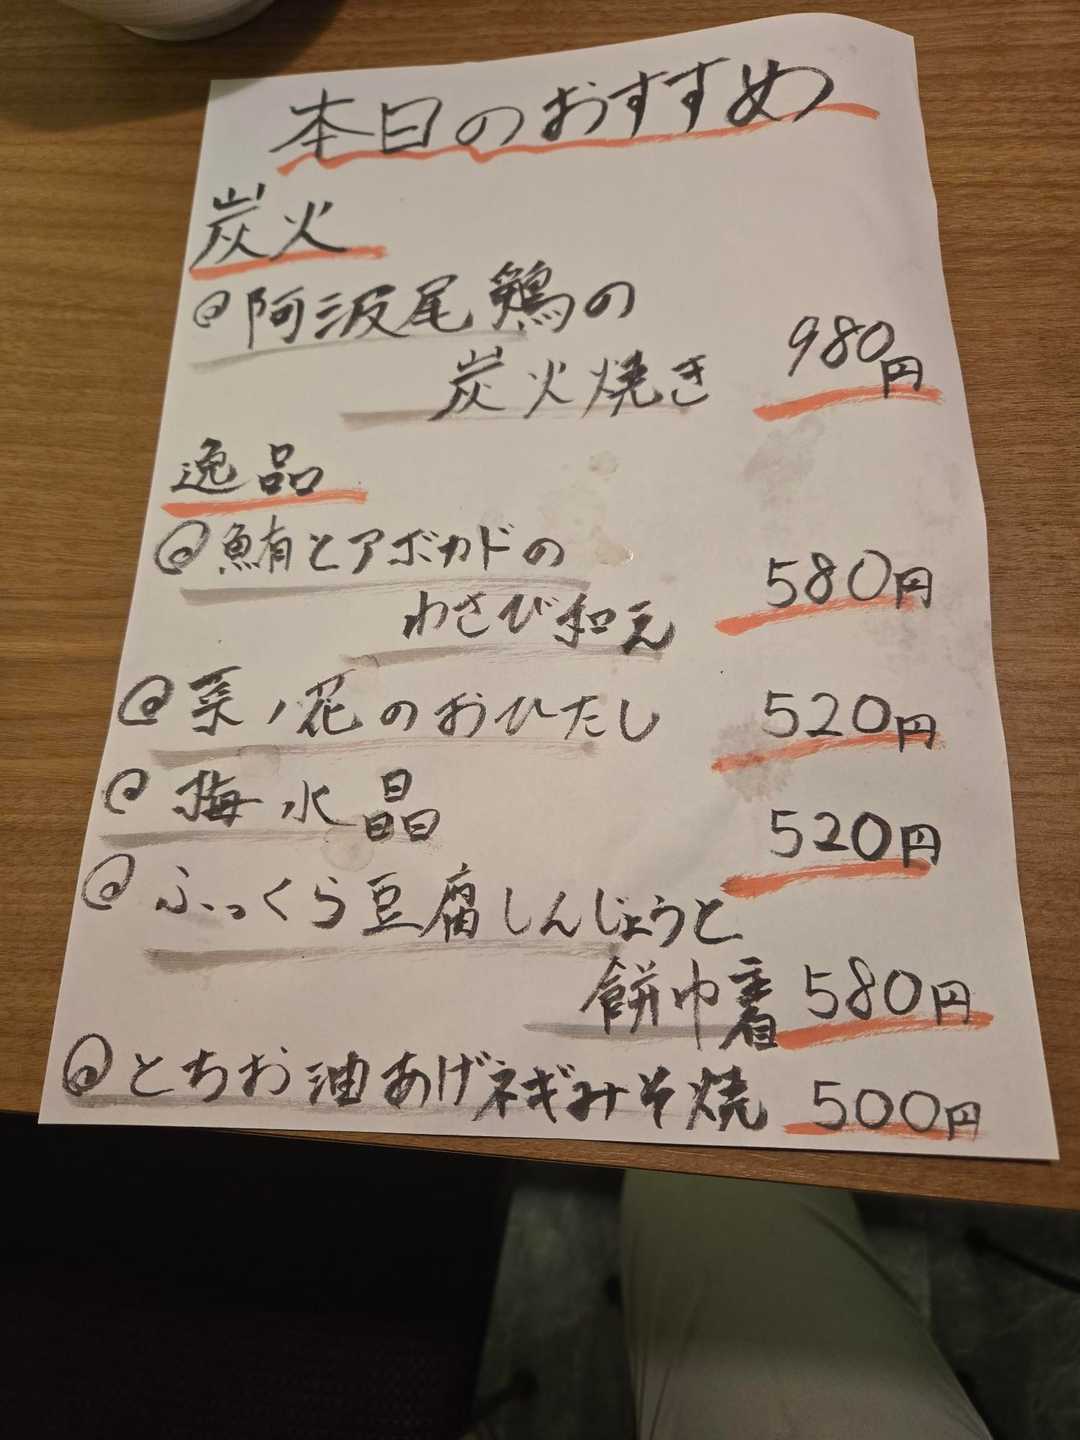 本日のおすすめ
炭火
@阿波尾鶏の
炭火焼き 980円
逸品
@鮪とアボカドの
わさび和え 580円
@菜ノ花のおひたし 520円
@梅水晶 520円
@ふっくら豆腐しんじょうと
餅巾着 580円
@とちお油あげネギみそ焼 500円